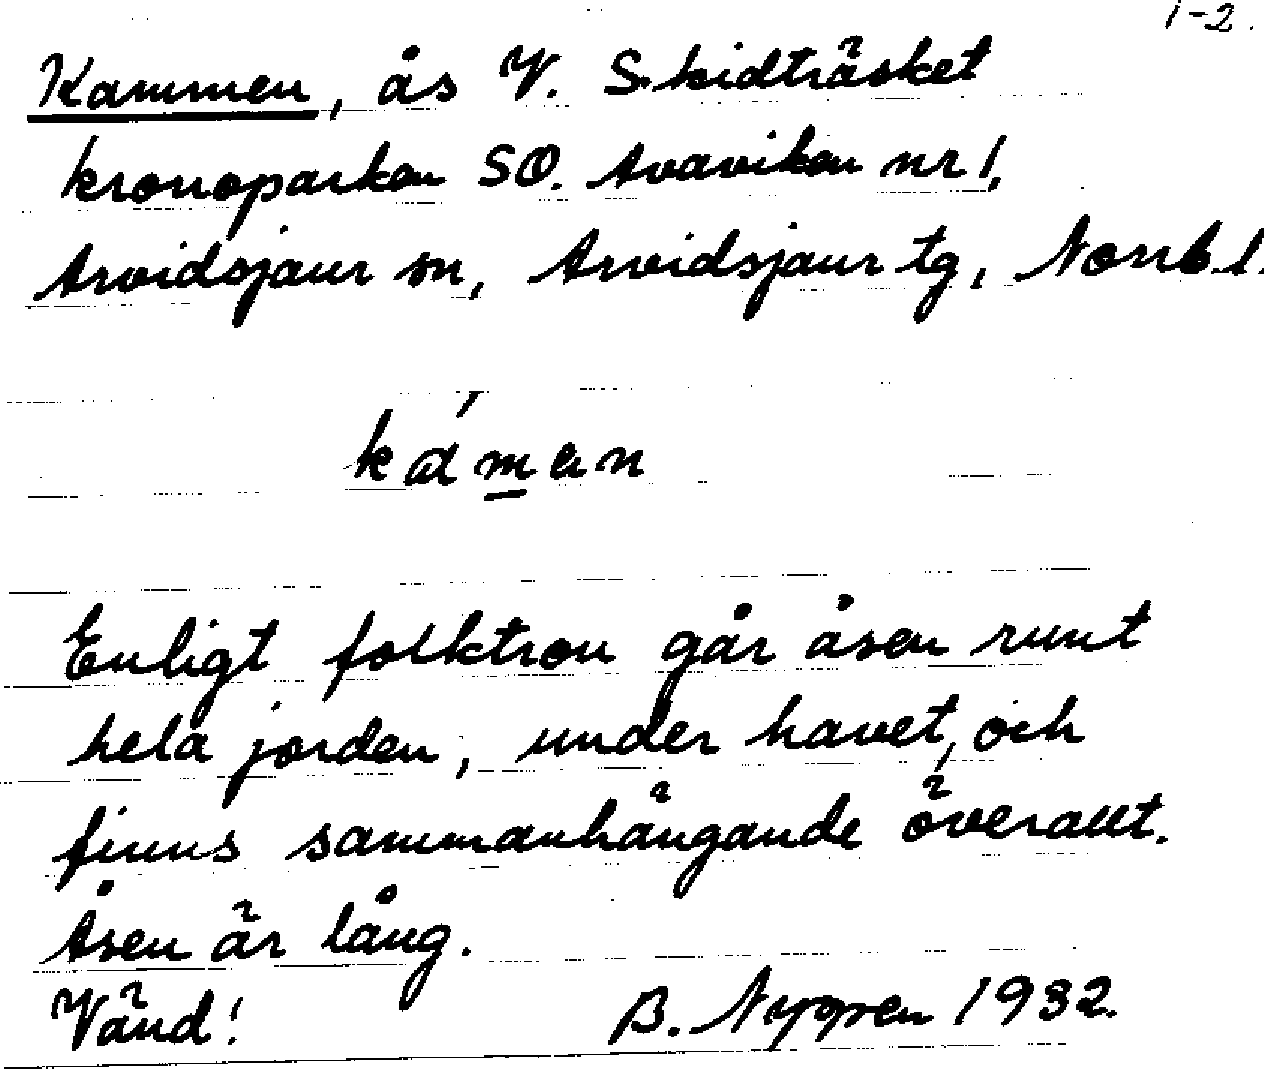 1-2.
Kammen, ås V. Skidträsket
kronoparken SO. Avaviken nr 1,
Arvidsjaur sn, Arvidsjaur tg, Norrb. l.
ká'man
Enligt folktron går åsen runt
hela jorden, under havet, och
finns sammanhängande överallt.
Åsen är lång.
Vänd! B. Nygren 1932.